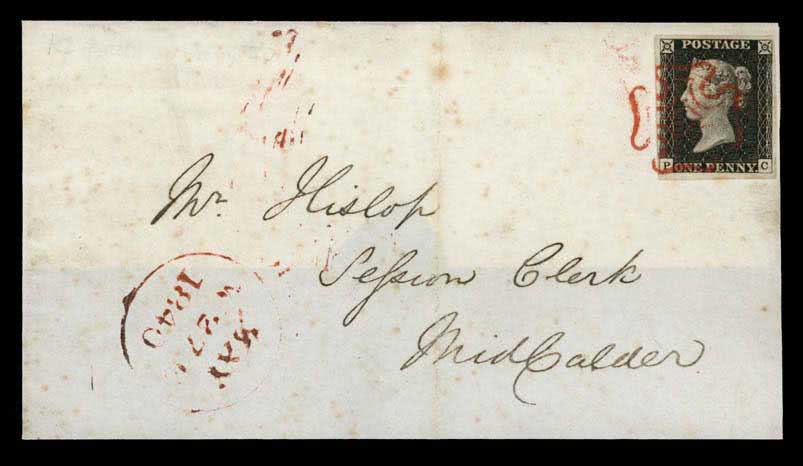 POSTAGE
P ONE PENNY C
Mr. Hislop
Seſsion Clerk
MidCalder
MAY
27
1840